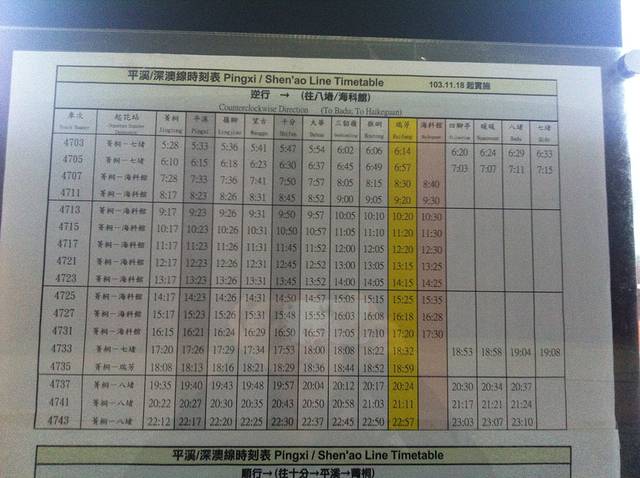 平溪/深澳線時刻表 Pingxi / Shen'ao Line Timetable 103.11.18 起實施
逆行 → (往八堵/海科館)
Counterclockwise Direction (To Badu, To Haikeguan)
車次 起訖站 菁桐 平溪 嶺腳 望古 十分 大華 三貂嶺 猴硐 瑞芳 海科館 四腳亭 暖暖 八堵 七堵
4703 菁桐－七堵 5:28 5:33 5:36 5:41 5:47 5:54 6:02 6:06 6:14 6:20 6:24 6:29 6:33
4705 菁桐－七堵 6:10 6:15 6:18 6:23 6:30 6:37 6:45 6:49 6:57 7:03 7:07 7:11 7:15
4707 菁桐－海科館 7:28 7:33 7:36 7:41 7:50 7:57 8:05 8:15 8:30 8:40
4711 菁桐－海科館 8:17 8:23 8:26 8:31 8:45 8:52 9:00 9:05 9:20 9:30
4713 菁桐－海科館 9:17 9:23 9:26 9:31 9:50 9:57 10:05 10:10 10:20 10:30
4715 菁桐－海科館 10:17 10:23 10:26 10:31 10:50 10:57 11:05 11:10 11:20 11:30
4717 菁桐－海科館 11:17 11:23 11:26 11:31 11:45 11:52 12:00 12:05 12:20 12:30
4721 菁桐－海科館 12:17 12:23 12:26 12:31 12:45 12:52 13:00 13:05 13:15 13:25
4723 菁桐－海科館 13:17 13:23 13:26 13:31 13:45 13:52 14:00 14:05 14:15 14:25
4725 菁桐－海科館 14:17 14:23 14:26 14:31 14:50 14:57 15:05 15:15 15:25 15:35
4727 菁桐－海科館 15:17 15:23 15:26 15:31 15:48 15:55 16:03 16:08 16:18 16:28
4731 菁桐－海科館 16:15 16:21 16:24 16:29 16:50 16:57 17:05 17:10 17:20 17:30
4733 菁桐－七堵 17:20 17:26 17:29 17:34 17:53 18:00 18:08 18:22 18:32 18:53 18:58 19:04 19:08
4735 菁桐－瑞芳 18:08 18:13 18:16 18:21 18:29 18:36 18:44 18:52 18:59
4737 菁桐－八堵 19:35 19:40 19:43 19:48 19:57 20:04 20:12 20:17 20:24 20:30 20:34 20:37
4741 菁桐－八堵 20:22 20:27 20:30 20:35 20:43 20:50 20:58 21:03 21:11 21:17 21:21 21:24
4743 菁桐－八堵 22:12 22:17 22:20 22:25 22:30 22:37 22:45 22:50 22:57 23:03 23:07 23:10
平溪/深澳線時刻表 Pingxi / Shen'ao Line Timetable
順行→(往十分→平溪→菁桐)